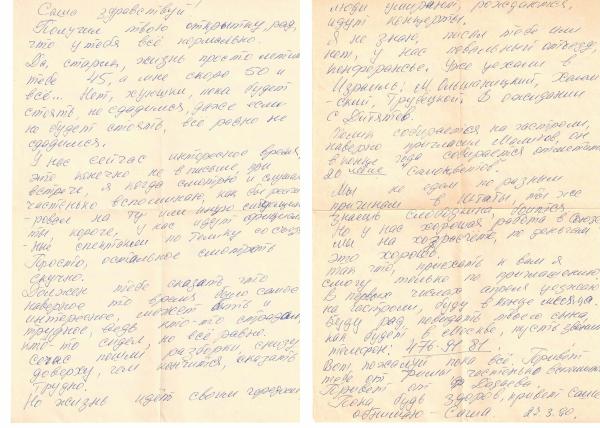 Саша здравствуй!
Получил твою открытку, рад,
что у тебя всё нормально.
Да, старик, жизнь просто летит
тебе 45, а мне скоро 50 и
всё... Нет, хуюшки, пока будет
стоять, не сдадимся, даже если
не будет стоять, всё равно не
сдадимся.
У нас сейчас интересное время,
это конечно не в письме, при
встрече, я когда смотрю и слушаю
частенько вспоминаю, как бы реаги-
ровал на ту или иную ситуацию
ты, короче, у нас идут
спектакли по
Просто, остальное смотреть
скучно.
Должен тебе сказать что
наверно то время было самое
интересное, может быть и
трудное, ведь кто-то страдал,
кто-то сидел, но всё равно.
Сейчас пошли разборки, снизу
доверху, чем кончится, сказать
трудно.
Но жизнь идёт своим чередом
люди умирают, рождаются,
идут концерты.
Я не знаю, писал тебе или
нет, у нас повальный отъезд,
Уже уехали в
Израиль: М.
Трубецкой. В ожидании
С. Дитятов.
собирается на гастроли,
наверно пригласил он
в конце года собирается отметить
20 летие "Самоцветов".
Мы не едем по разным
причинам в Штаты, ты же
знаешь Слободкина боится
Но у нас хорошая работа в Союзе
мы на хозрасчёте, по деньгам
это хорошо.
так что, приехать к вам я
смогу только по приглашению,
В первых числах апреля уезжаю
на гастроли, буду в конце месяца.
Буду рад повидать твоего сына,
как будет в Москве, пусть звонит
телефон: 476-91 81.
Вот, пожалуй пока всё. Привет
тебе от частенько вспоминаем
Привет от
Пока будь здоров, привет семье
обнимаю - Саша. 23.3.90.